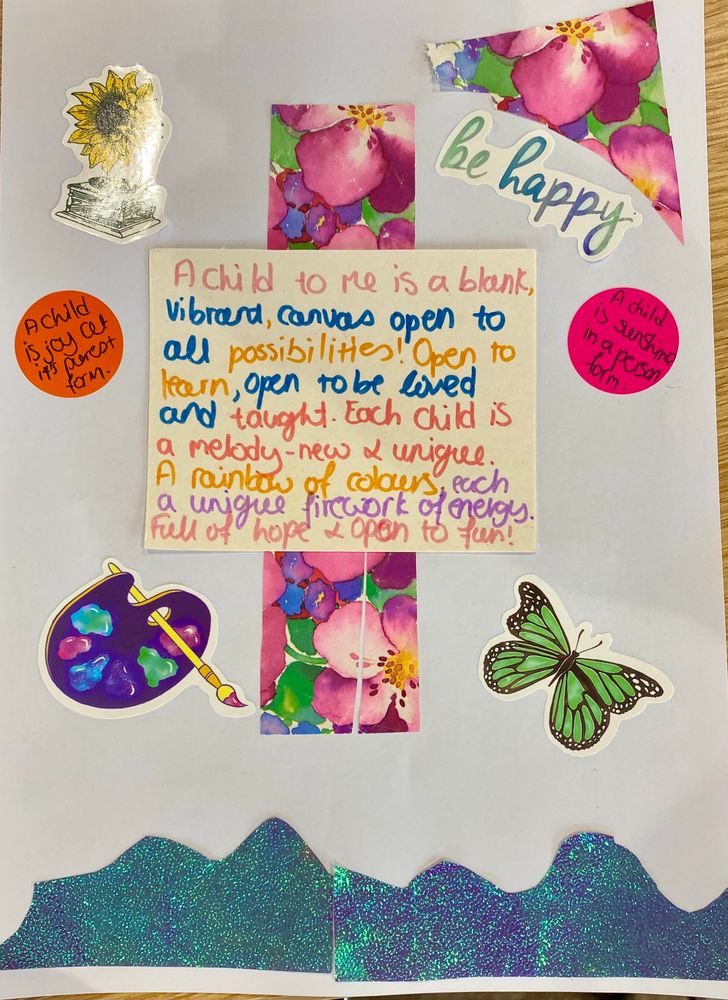 be happy
A child to me is a blank,
vibrant, canvas open to
all possibilities! Open to
learn, open to be loved
and taught. Each child is
a melody-new & unique.
A rainbow of colours, each
a unique firework of energy.
Full of hope & open to fun!
A child
is joy at
it's purest
form.
A child
is sunshine
in a person
form.